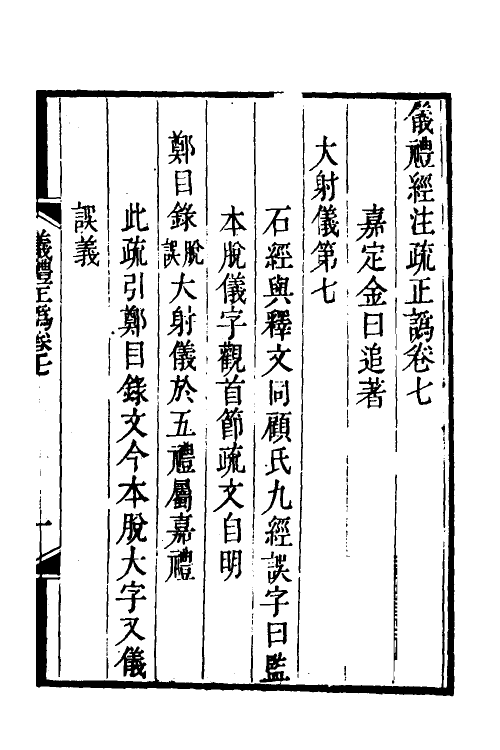 儀禮經注疏正譌卷七
嘉定金曰追著
大射儀第七
石經與釋文同顧氏九經誤字曰監
本脫儀字觀首節疏文自明
鄭目錄脫誤大射儀於五禮屬嘉禮
此疏引鄭目錄文今本脫大字又儀
誤義
儀禮正譌卷七
一